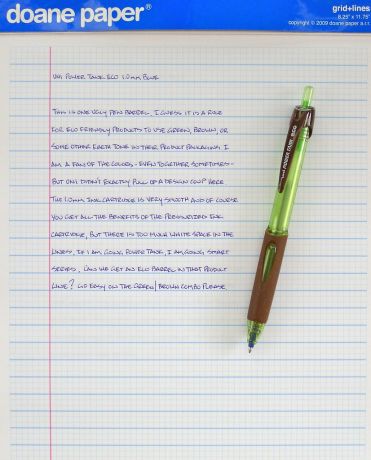 doane paper®
grid+lines
8.25" x 11.75"
copyright © 2009 doane paper
UNI POWER TANK ECO 1.0MM BLUE
THIS IS ONE UGLY PEN BARREL. I GUESS IT IS A RULE
FOR ECO FRIENDLY PRODUCTS TO USE GREEN, BROWN, OR
SOME OTHER EARTH TONE IN THEIR PRODUCT PACKAGING. I
AM A FAN OF THE COLORS - EVEN TOGETHER SOMETIMES -
BUT UNI DIDN'T EXACTLY PULL OF A DESIGN COUP HERE.
THE 1.0MM INK CARTRIDGE IS VERY SMOOTH AND OF COURSE
YOU GET ALL THE BENEFITS OF THE PRESSURIZED INK
CARTRIDGE, BUT THERE IS TOO MUCH WHITE SPACE IN THE
LINES. IF I AM GOING POWER TANK, I AM GOING SMART
SERIES. CAN WE GET AN ECO BARREL IN THAT PRODUCT
LINE? GO EASY ON THE GREEN/BROWN COMBO PLEASE.
uni POWER TANK ECO